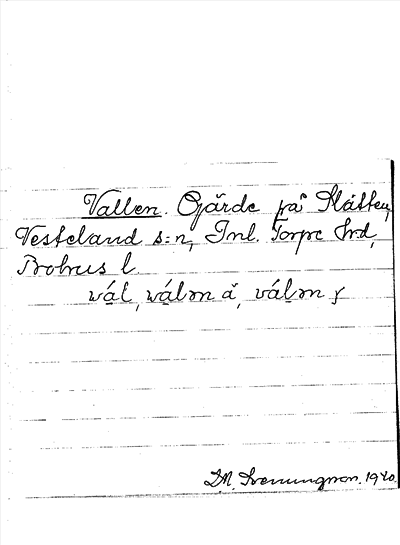 Vallen. Gärde på Slätten,
Vesteland s:n, Inl. Torpe hrd,
Bohus l.
wál, wálən ä, válən ʃ
J.M. Svenungson. 1940.